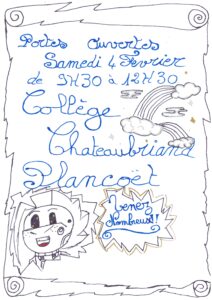 Portes Ouvertes
Samedi 4 Février
de 9H30 à 12H30
Collège
Chateaubriand
Plancoët
Venez
Nombreux!